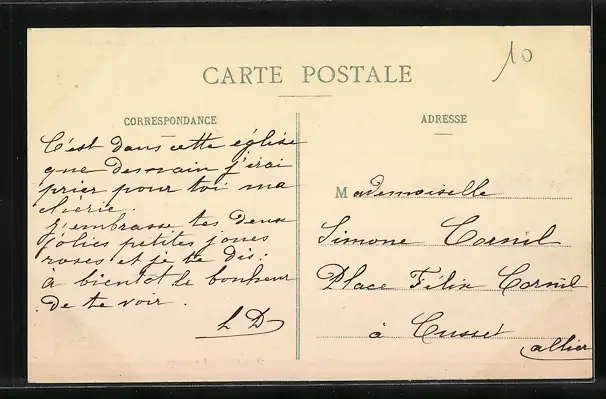 10
CARTE POSTALE
CORRESPONDANCE
C'est dans cette église
que demain j'irai
prier pour toi ma
chérie.
J'embrasse tes deux
jolies petites joues
roses et je te dis :
à bientôt le bonheur
de te voir.
L D
ADRESSE
Mademoiselle
Simone Cornil
Place Félix Cornil
à Cusset
allier